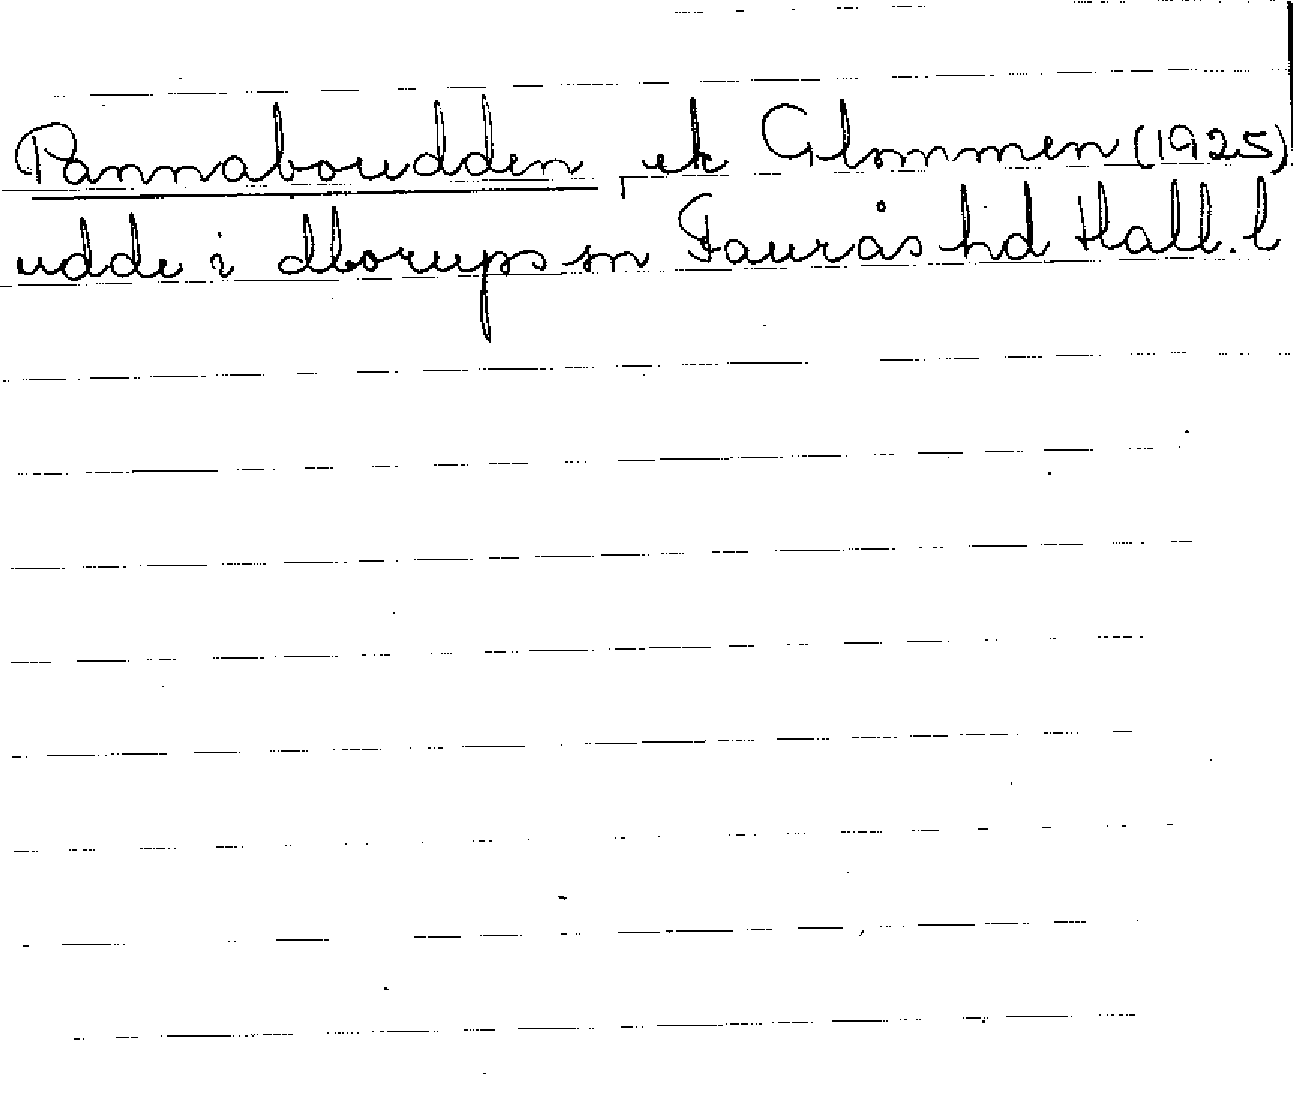 Pannaboudden, ek Glommen (1925)
udde i Morups sn Faurås hd Hall. l